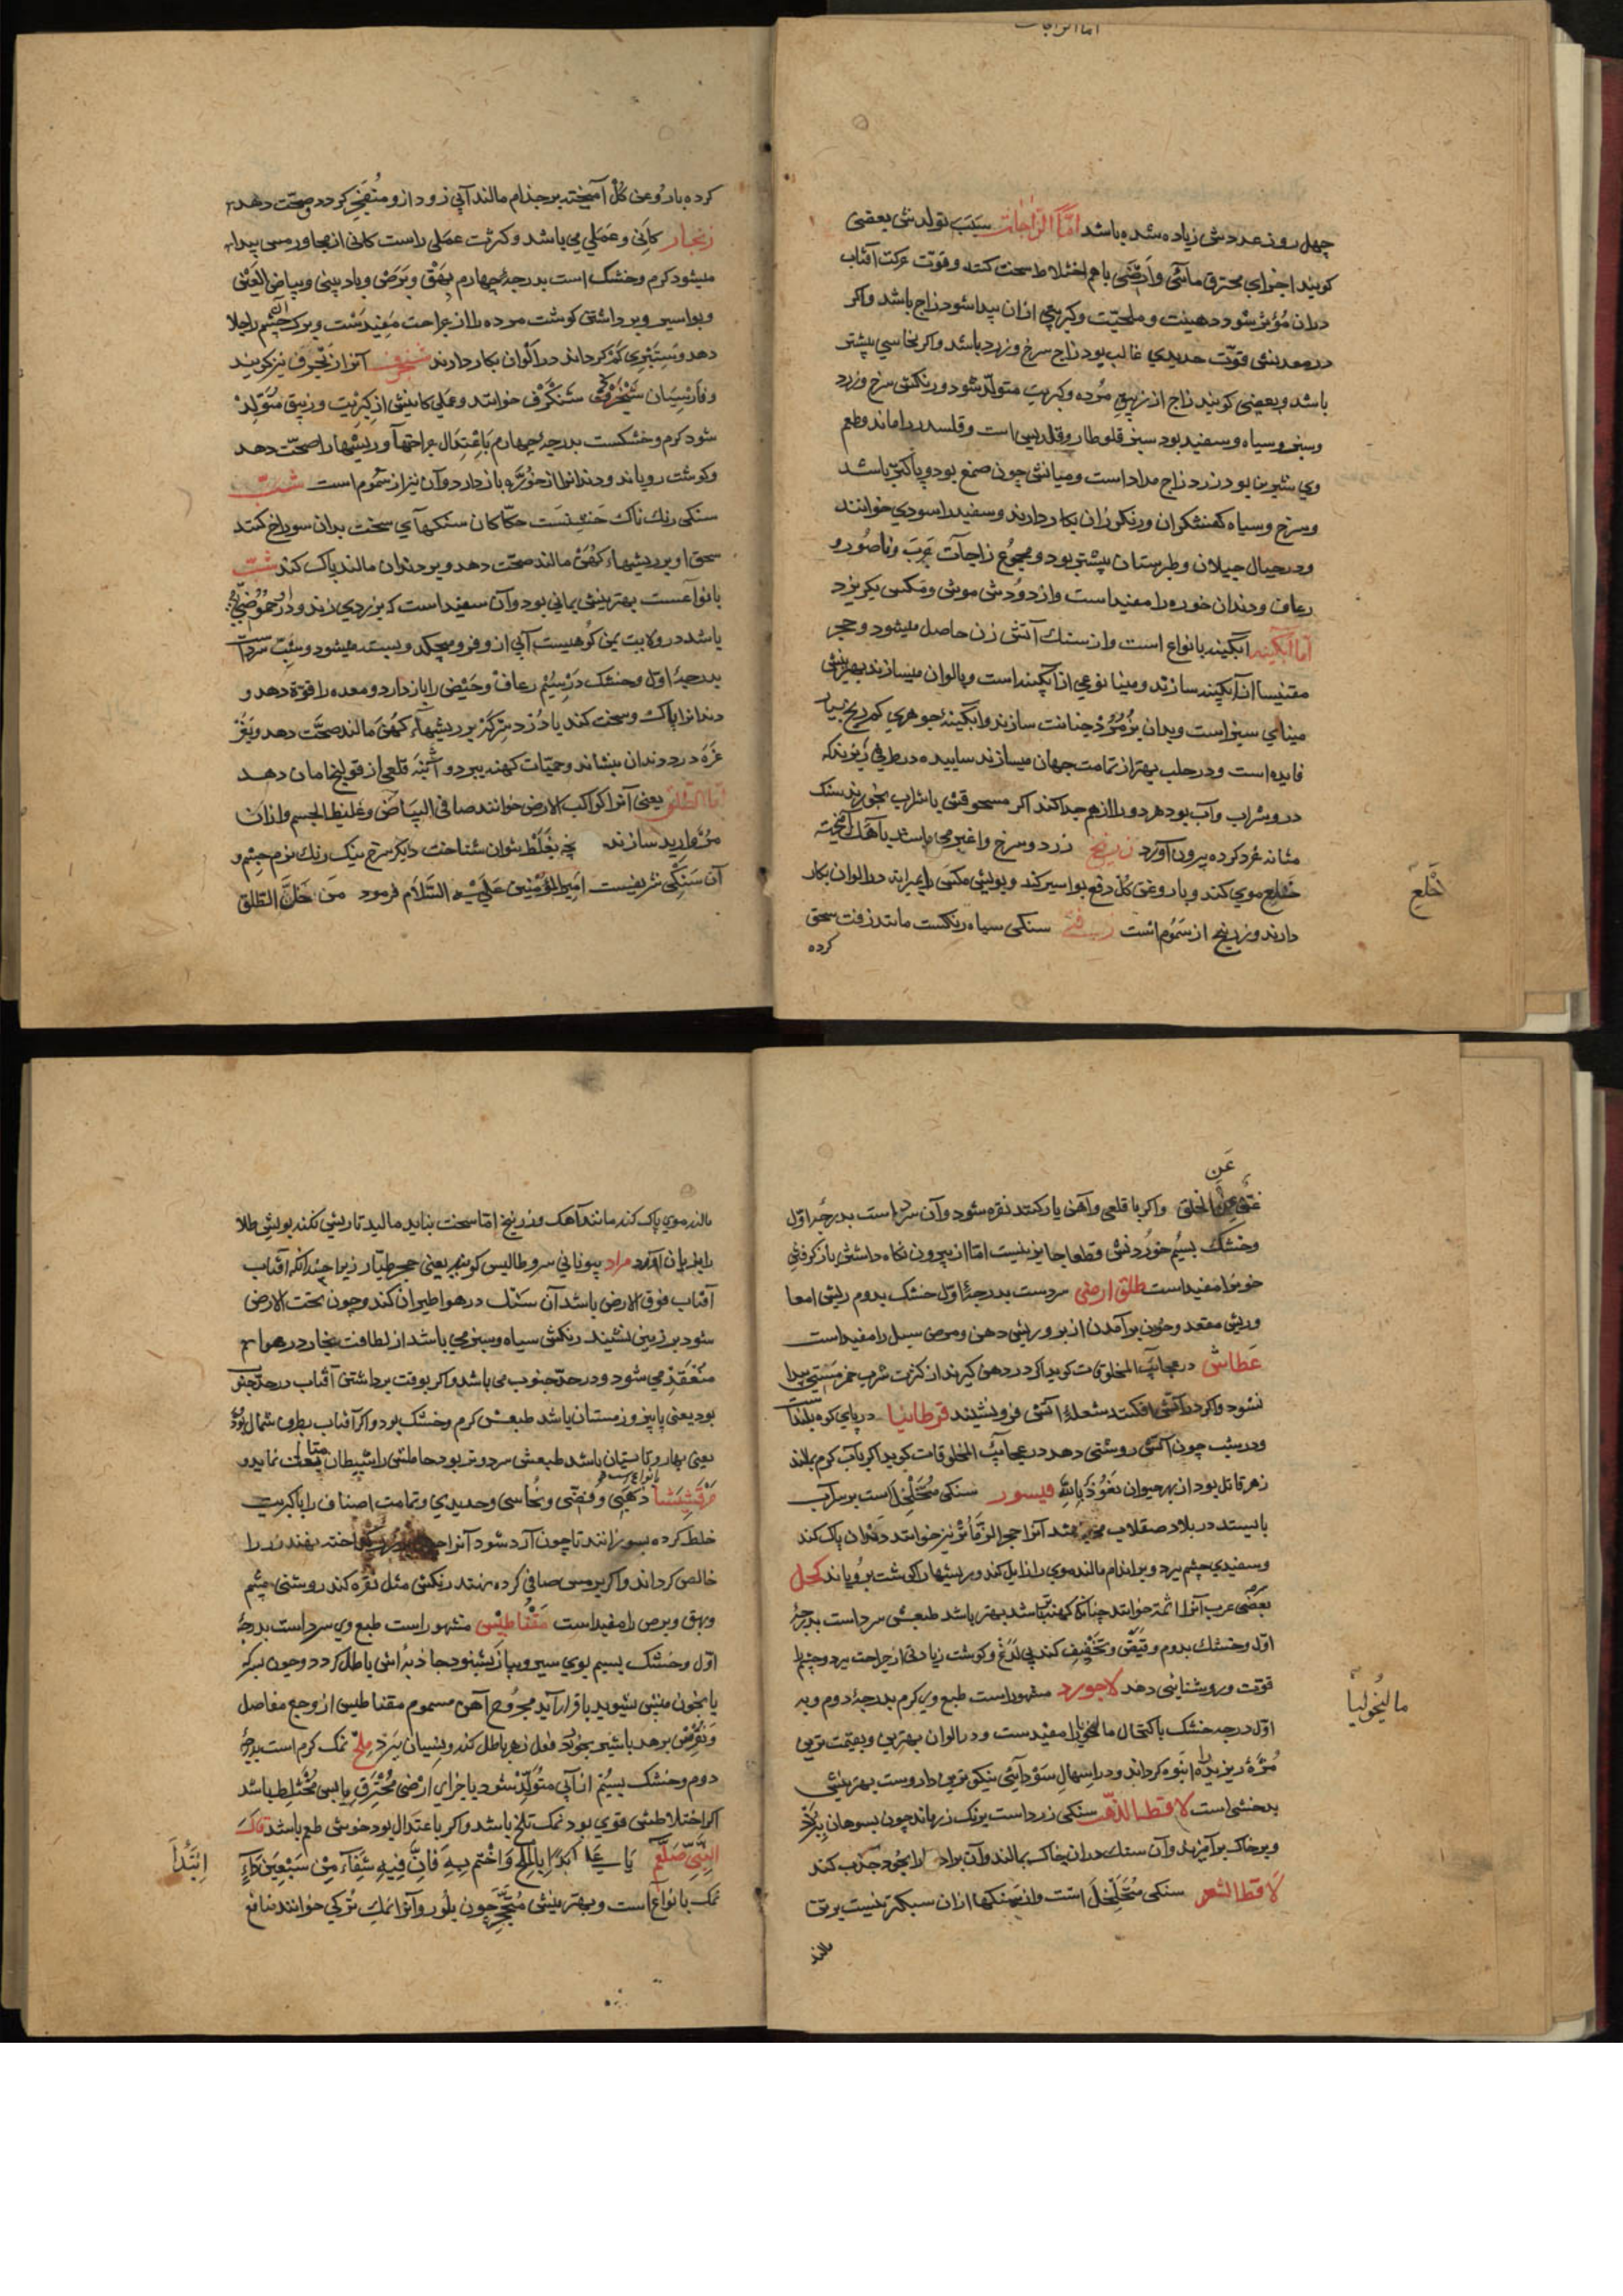 چهل روز عددش زیاده شده باشد اما الزاجات سبب تولدش بعضی
کویند اجزای محترق مائی وارضی باهم اختلاط سخت کنند وقوت حرکت آفتاب
دران مؤثر شود دهنیت وملحیت وکبریتی ازان پیدا شود زاج باشد واکر
در معدنش قوت حدیدی غالب بود زاج سرخ وزرد باشد واکر نحاسی بیشتر
باشد وبعضی کویند زاج از زیبق مرده وکبریت متولد شود ورنکش سرخ وزرد
وسبز وسیاه وسفید بود سبز قلوطار وقلدیس است وقلسدر راماند وطعم
وی شیرین بود زرد زاج مداد است ومیانش چون صمغ بود وپاکتر باشد
وسرخ وسیاه کفشکران ورنکرزان بکار دارند وسفید را سودی خوانند
ودر جبال جیلان وطبرستان بیشتر بود ومجموع زاجات جرب وناصور و
رعاف ودندان خوره را مفید است واز دودش موش ومکس بکریزد
اما آبکینه آبکینه بانواع است واز سنك آتش زن حاصل میشود وحجر
مقنیسا ان آبکینه سازند ومینا نوعی از آبکینه است وبالوان میسازند بهترینش
مینای سبز است وبدان بزمرد خیانت سازند وابکینه جوهری کم ریح بسیار
فایده است ودر حلب بهتر از تمامت جهان میسازند ساییده در ظرفی ریزند که
درو شراب وآب بود هر دو را از هم جدا کند اکر مسحوقش باشراب بخورند سنك
مثانه خرد کرده بیرون آورد زرنیخ زرد وسرخ واغبر می باشد با آهك آمیخته
خلع موی کند وبا روغن کل دفع بواسیر کند وبویش مکس را بمیراند در الوان بکار
دارند وزرنیخ از سموم است زفتی سنکی سیاه رنکست مانند زفت سحق
کرده
خلع
کرده با روغن کل آمیخته بر جذام مالند آبی زود ازو منفجر کردد وصحت دهد
زنجار کانی وعملی می باشد وکثرت عملی راست کانی از مجاور مس پیدا
میشود کرم وخشک است بدرجۀ چهارم بهق وبرص وباد بینی وبیاض العین
وبواسیر وبرداشتن کوشت مرده را از جراحت مفیدست وبرك چشم را جلا
دهد وسبتبری کم کرداند در الوان بکار دارند شنجرف آنرا زنجرف نیز کویند
وفارسیان شنکرف خوانند وعملی کانیش از کبریت وزیبق متولد
شود کرم وخشکست بدرجۀ چهارم باعتدال جراحتها وریشها را صحت دهد
وکوشت رویاند ودندانرا از خوره باز دارد وآن نیز از سموم است
سنکی رنك ناك خشنست حکاکان سنکهای سخت بدان سوراخ کنند
سحق او بر ریشهای کهن مالند صحت دهد وبر دندان مالند پاک کند شب
بانواعست بهترینش یمانی بود وآن سفید است که بزردی زند
باشد در ولایت یمن کوهیست آبی ازو فرو میچکد وبسته میشود وشب سردست
بدرجۀ اول وخشک در سیم رعاف وحیض را باز دارد ومعده را قوة دهد و
دندانرا پاك وسخت کند با دزد سرکه بر ریشهاء کهن مالند صحت دهد
غره درد دندان بنشاند وحمیات کهنه ببرد و قلعی از قولنج امان دهد
اما الطلق یعنی آنرا کواکب الارض خوانند صافی البیاض وغلیظ الجسم وازان
مروارید سازند چه بغلط بتوان شناخت دیکر سرخ نیک رنك نرم جسم و
آن سنکی شریفست امیر المؤمنین علیه السلام فرمود من حل الطلق
عن
غنی عن الخلق واکر با قلعی وآهن یار کنند نقره شود وآن سرد است بدرجۀ اول
وخشك بسیم خوردنش قطعا جایز نیست اما از بیرون نکاه داشتن باز کرفتن
خونرا مفید است طلق ارضی سردست بدرجۀ اول خشك بدوم ریش امعا
وریش مقعد وخون برآمدن از بر وریش دهن ومرض سبل را مفید است
عطاش در عجایب المخلوقات کوید اکر در دهن کیرند از کثرت شرب خمر مستی پیدا
نشود واکر در آتش افکنند شعلۀ آتش فرو نشیند قرطانیا در پای کوه بلندست
ودر شب چون آتش روشنی دهد در عجایب المخلوقات کوید اکر بآب کرم بمالند
زهر قاتل بود از بهر حیوان نعوذ بالله فیسور سنکی متخلخل است بر سر آب
بایستد در بلاد صقلاب می باشد آنرا حجر الزمانر نیز خوانند دندان پاك کند
وسفیدی چشم ببرد وبر اندام مالند موی را زایل کند وریشها را کوشت برویاند کحل
بعضی عرب آنرا اثمد خوانند چنانکه کهنه باشد بهتر باشد طبعش سرد است بدرجۀ
اول وخشك بدوم وتنقی وتخفیف کند بی لذع وکوشت زیادتی از جراحت ببرد وچشم را
قوت وروشنایی دهد لاجورد مشهور است طبع وی کرم بدرجۀ دوم وبه
اول درجه خشك باکتحال مالیخولیا را مفیدست ودر الوان بهترین وبقیمت ترین
مژۀ ریزیده را انبوه کرداند ودر اسهال سودایی نیکوترین داروست بهترینش
بدخشی است لاقط الذهب سنکی زرد است برنك زر هاند چون بسوهان ببرند
وبر خاك برآمیزند وآن سنك در ان خاک بمالند وآن براده را بخود جذب کند
لاقط الشعر سنکی متخلخل است واز سنکها ازان سبکتر نیست بر تن
مالند
مالیخولیا
مالند موی پاک کند مانند آهک وزرنیخ اما سخت بناید مالید تا ریش نکند بویش طلا
را بزیان آورد مراد بیونانی سروطالیس کویند یعنی حجر طیار زیرا چندانکه آفتاب
آفتاب فوق الارض باشد آن سنك در هوا طیران کند وچون تحت الارض
شود بر زمین نشیند رنکش سیاه وسبز می باشد از لطافت بخار در هوا
منعقد می شود ودر حد جنوب می باشد واکر بوقت برداشتن آفتاب در حد جنوب
بود یعنی پاییز وزمستان باشد طبعش کرم وخشك بود واکر آفتاب بطرف شمال بود
یعنی بهار وتابستان باشد طبعش سرد وتر بود حاملش را شیطان متابعت نماید و
مرقشیشا بانواع است ذهبی وفضی ونحاسی وحدیدی وتمامت اصناف را با کبریت
خلط کرده بسوزانند تا چون آرد شود آنرا نهند زر را
خالص کرداند واکر بر مس صافی کرده نهند رنکش مثل نقره کند روشنی چشم
وبهق وبرص را مفید است مقناطیس مشهور است طبع وی سرد است بدرجۀ
اول وخشك بسیم بوی سیر وپیاز بشنود جاذبه اش باطل کردد وچون بسرکه
یا بخون بیش بشوید با قرار آید مجروح آهن مسموم مقناطیس از وجع مفاصل
ونقرس برهد باشیر بخورد فعل زهر باطل کند ونسیان ببرد ملح نمک کرم است بدرجۀ
دوم وخشك بسیم از آبی متولد شود با جزای ارضی محترق یابس مختلط باشد
اکر اختلاطش قوی بود نمك تلخ باشد واکر باعتدال بود خوش طعم باشد قال
النبی صلعم یا علی ابدا بالملح واختم به فان فیه شفاء من سبعین داء
نمک بانواع است وبهترینش متحجر چون بلور وآنرا نمك ترکی خوانند منافع
ابتدا